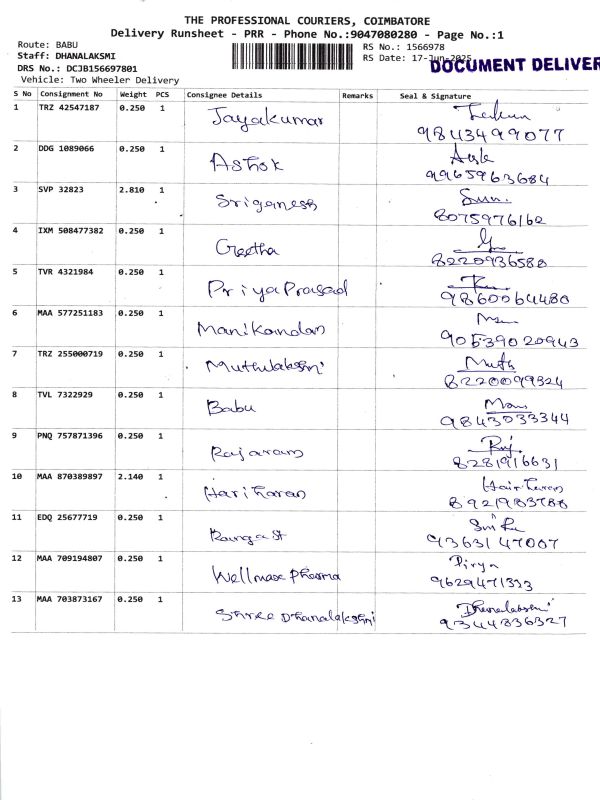 THE PROFESSIONAL COURIERS, COIMBATORE
Delivery Runsheet - PRR - Phone No.:9047080280 - Page No.:1
Route: BABU
RS No.: 1566978
Staff: DHANALAKSMI
RS Date: 17-Jun-2025
DOCUMENT DELIVER
DRS No.: DCJB156697801
Vehicle: Two Wheeler Delivery
S No Consignment No Weight PCS Consignee Details Remarks Seal & Signature
1 TRZ 42547187 0.250 1 Jayakumar
9843499077
2 DDG 1089066 0.250 1 Ashok
9965963684
3 SVP 32823 2.810 1 Sriganesh
8075976162
4 IXM 508477382 0.250 1 Geetha
8220936580
5 TVR 4321984 0.250 1 PriyaPrasad
9860064480
6 MAA 577251183 0.250 1 Manikandan
90539020943
7 TRZ 255000719 0.250 1 Muthulakshmi Muth
8220099324
8 TVL 7322929 0.250 1 Babu
9843033344
9 PNQ 757871396 0.250 1 Rajaram Raj
8281916631
10 MAA 870389897 2.140 1 Hariharan
8921983788
11 EDQ 25677719 0.250 1
9363147007
12 MAA 709194807 0.250 1 Wellmax Pharma Divya
9629471323
13 MAA 703873167 0.250 1 Shree Dhanalakshmi Dhanalakshmi
9344836327